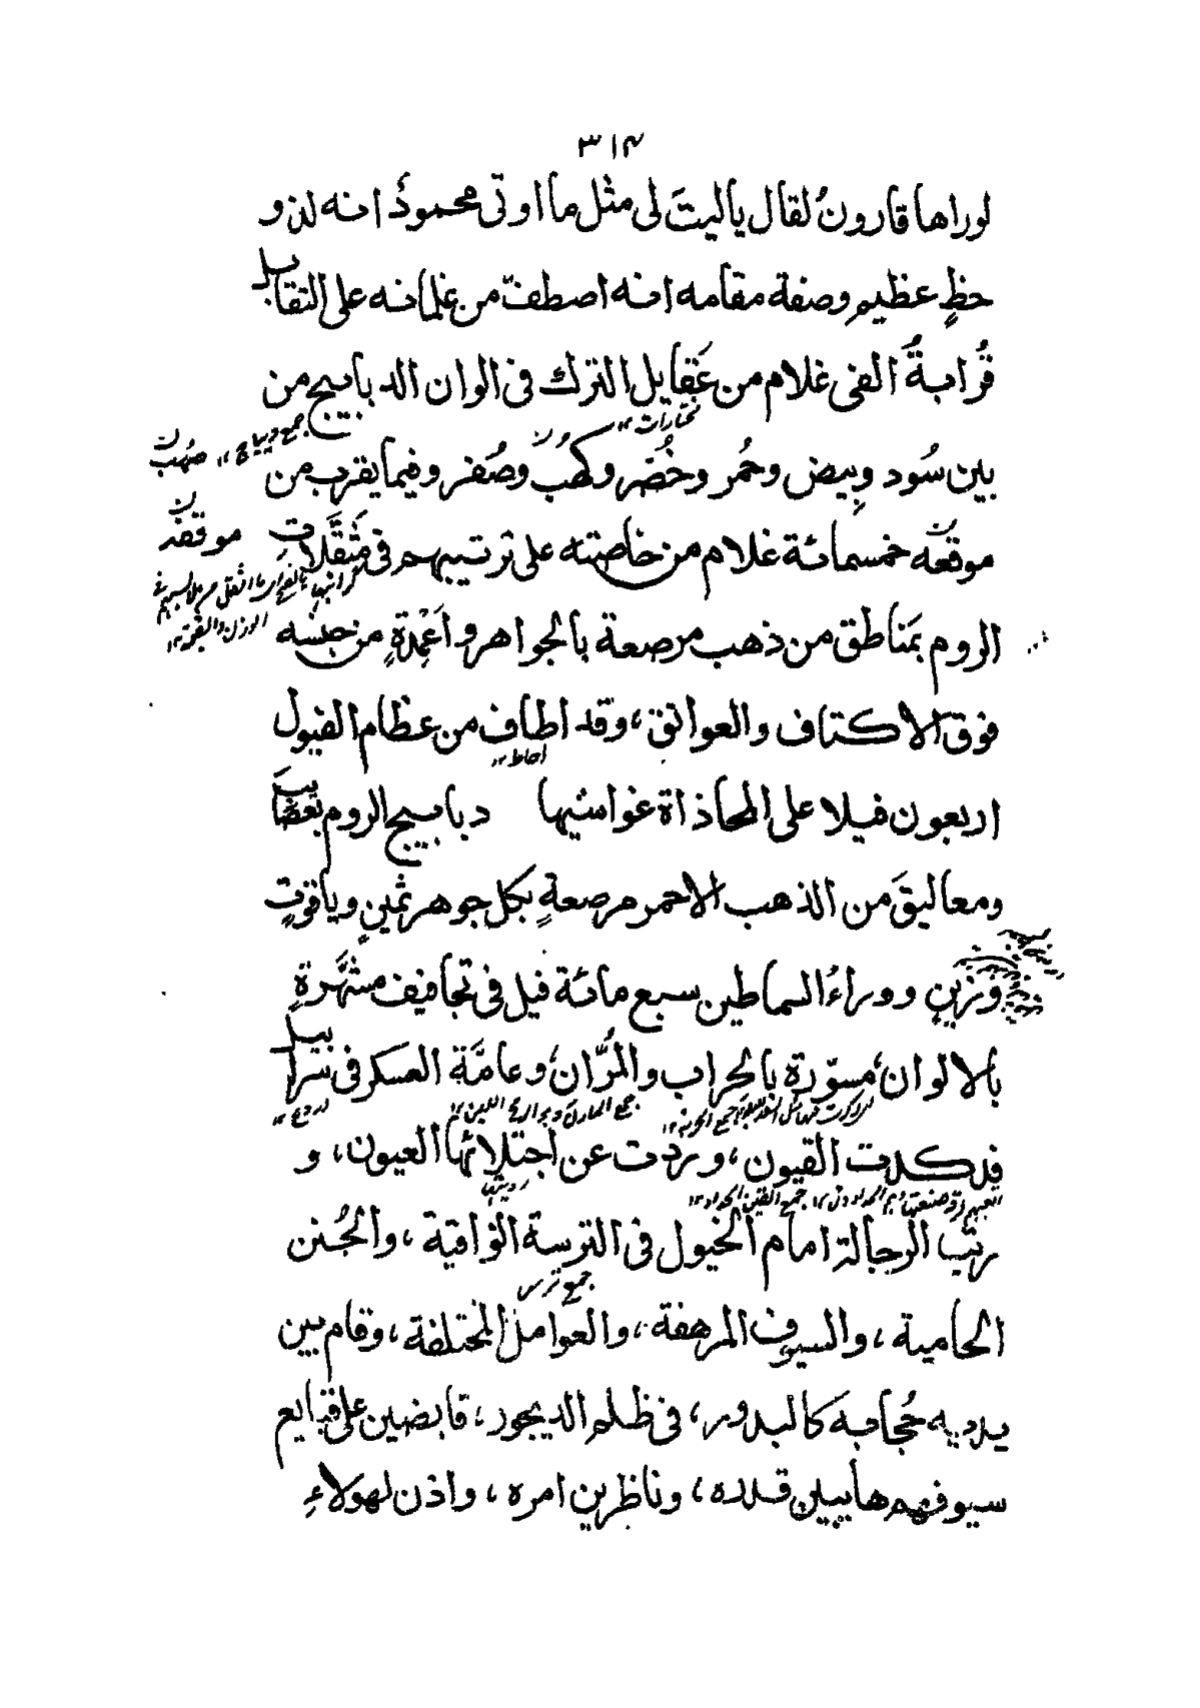 ٣١٤
لوراها قارونُ لقال ياليتَ لى مثل ما اوتى محمودٌ انه لذو
حظٍ عظيم وصفة مقامه انه اصطفّ من غلمانه على التقابل
قُرابةُ الفى غلام من عَقايل الترك فى الوان الدبابيج من
مختارات١٢ جمع ديباج ١٢
بين سُود وبِيض وحُمر وخُضر وكُهب وصُفر وفيما يقرب من
صُهب
موقفه خمسمائة غلام من خاصته على ترتيبهم فى مثقّلاتِ
موقفه
الروم بمَناطق من ذهب مرصعة بالجواهر واَعْمِدةٍ من جنسه
فوق الاكتاف والعواتق، وقد اطاف من عظام الفيول
احاط١٢
اربعون فيلا على المحاذاة غواشيها دبابيج الروم بعصَايب
ومعاليقَ من الذهب الاحمر مرصعةٍ بكل جوهر ثمينٍ وياقوتٍ
وزينٍ ووراءُ السماطين سبع مائة فيل فى تجافيف مشهَّرةٍ
بالالوان، مسوّرة بالحِراب والمُرّان، وعامّة العسكر فى سرابيل
دروع ١٢
قد كدت القيون، وردت عن اجتلائها العيون، و
رتّب الرجالة امام الخيول فى الترسة الواقية، والجُنن
جمع ترس
الحامية، والسيوف المرهفة، والعوامل المختلفة، وقام بين
يديه حُجابه كالبدور، فى ظلم الديجور، قابضين على قبايع
سيوفهم هايبين قدره، وناظرين امره، واذن لهولاءِ